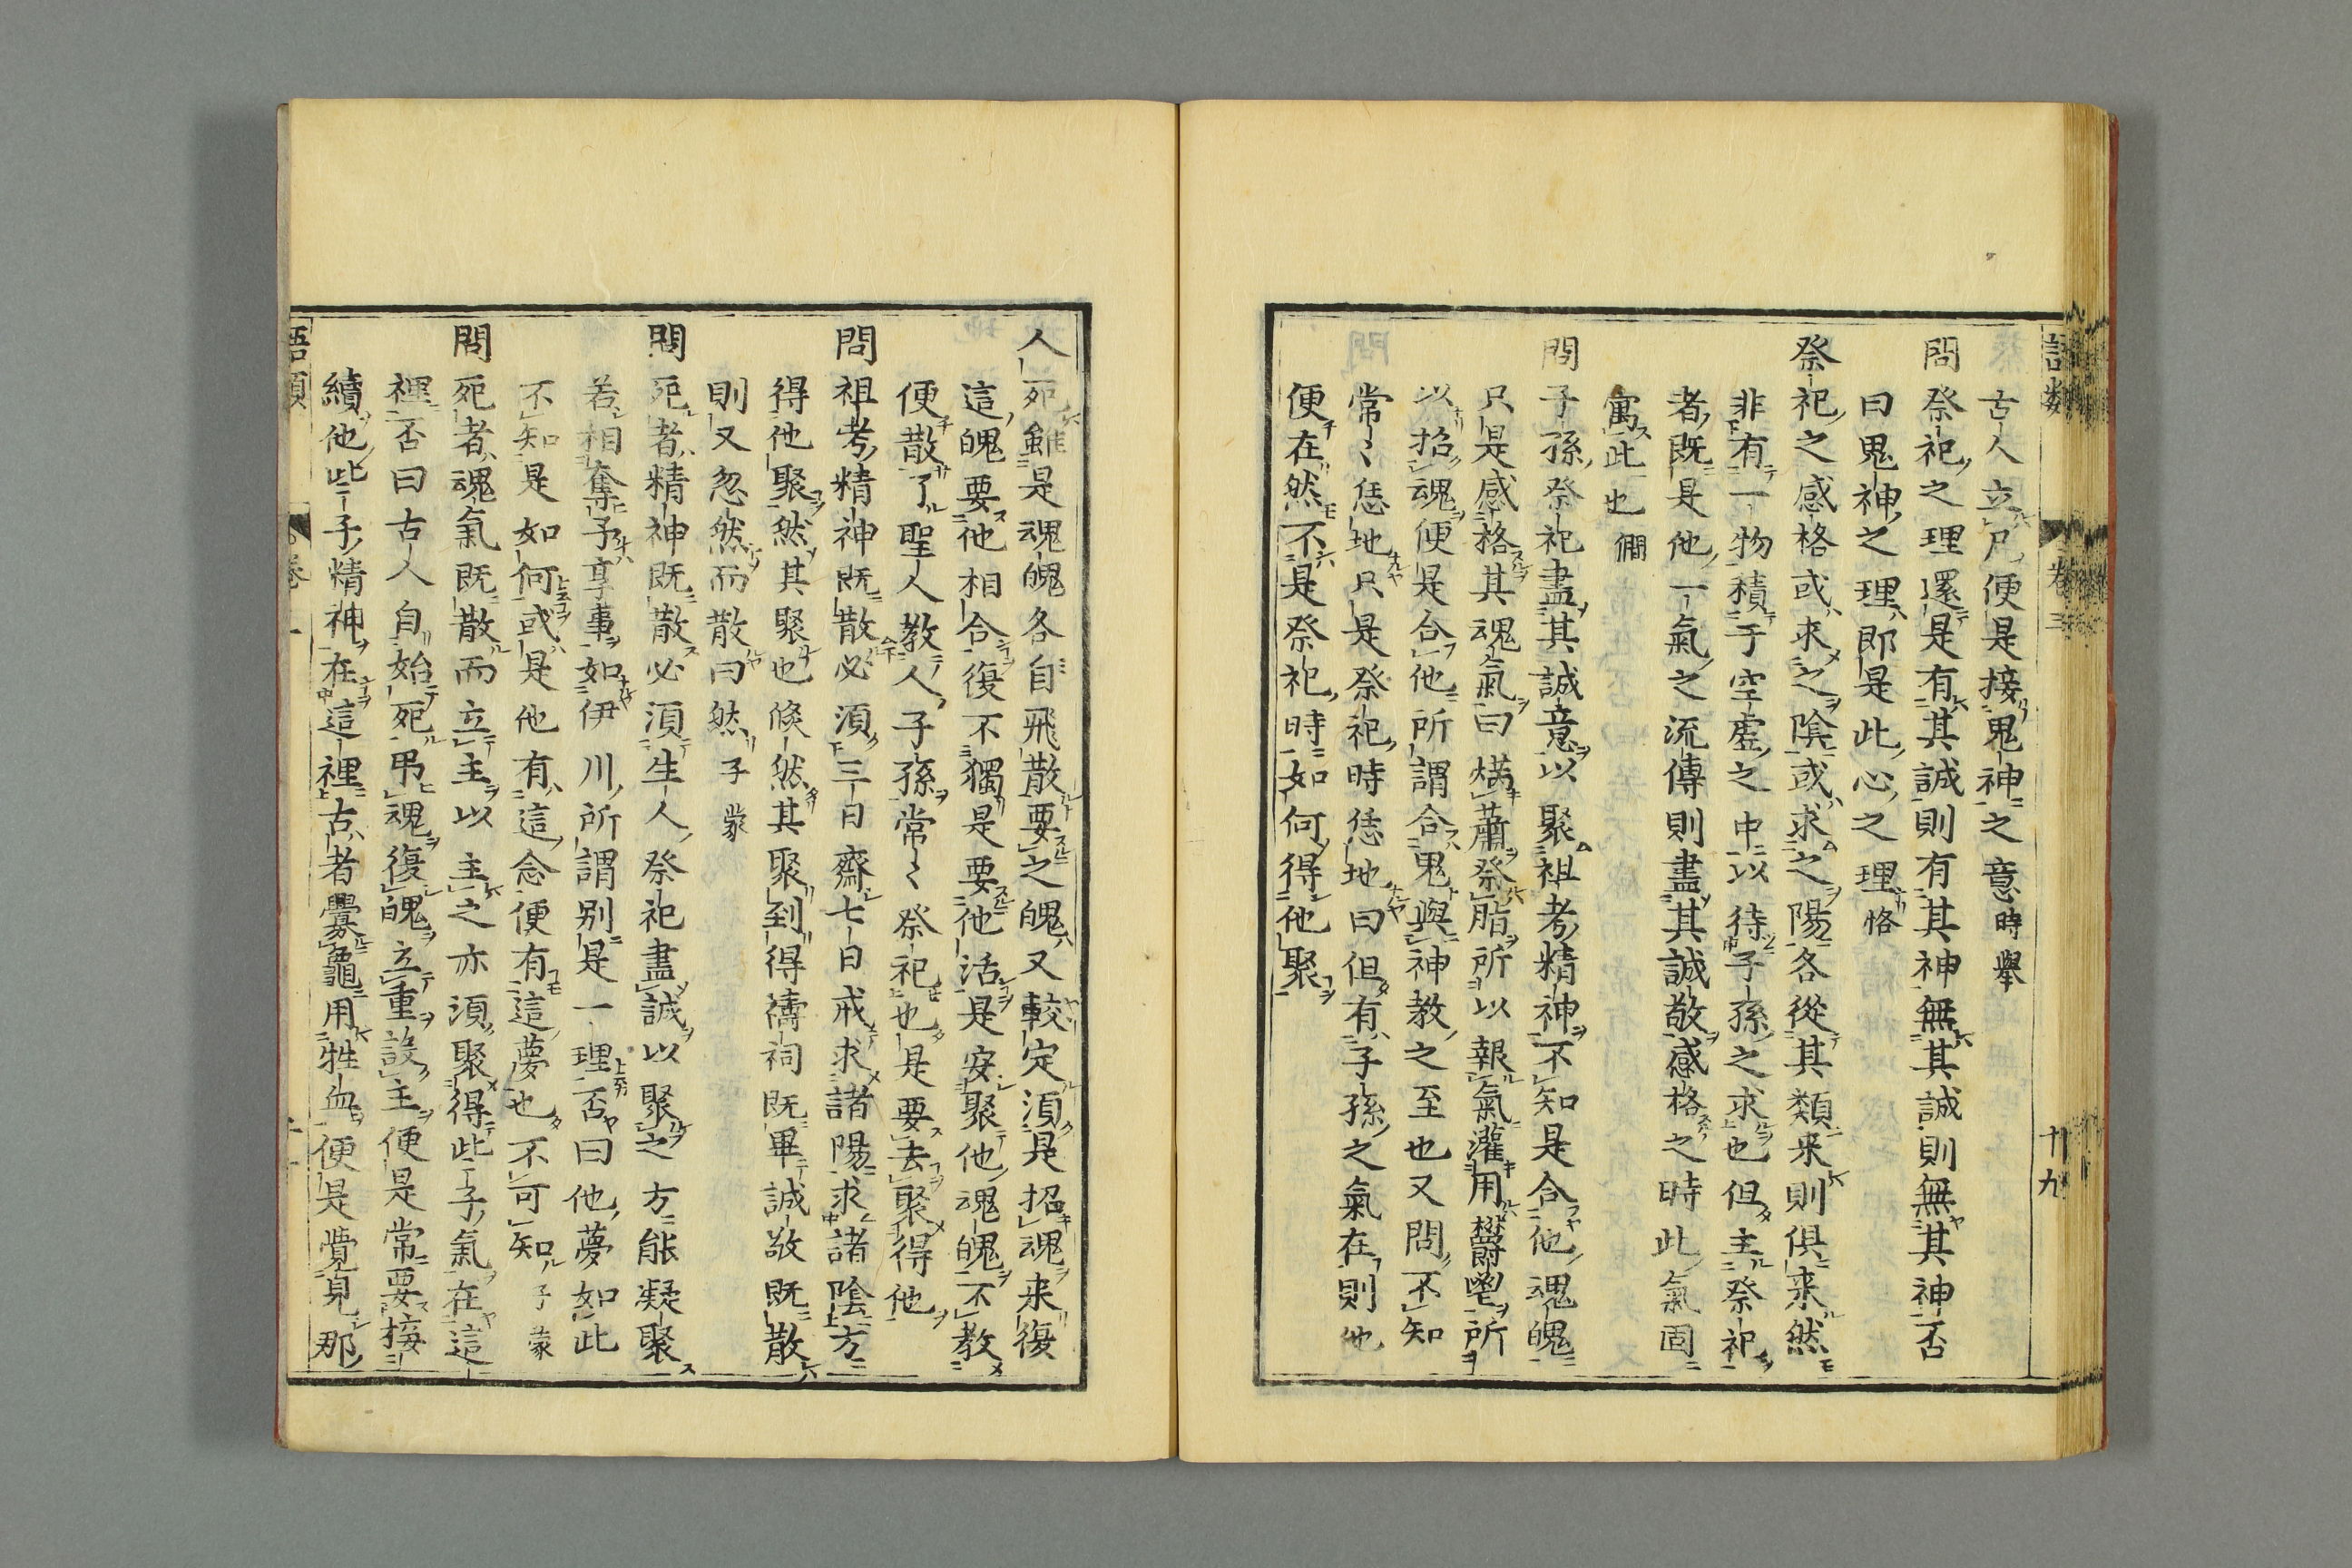 語類
卷三
十九
古人立尸便是接鬼神之意時舉
問祭祀之理還是有其誠則有其神無其誠則無其神否
曰鬼神之理即是此心之理恪
祭祀之感格或求之陰或求之陽各從其類来則俱来然
非有一物積于空虛之中以待子孫之求也但主祭祀
者既是他一氣之流傳則盡其誠敬感格之時此氣固
寓此也僩
問子孫祭祀盡其誠意以聚祖考精神不知是合他魂魄
只是感格其魂氣曰焫蕭祭脂所以報氣灌用鬱鬯所
以招魂便是合他所謂合鬼與神教之至也又問不知
常〻恁地只是祭祀時恁地曰但有子孫之氣在則他
便在然不是祭祀時如何得他聚
人死雖是魂魄各自飛散要之魄又較定須是招魂来復
這魄要他相合復不獨是要他活是安聚他魂魄不教
便散了聖人教人子孫常〻祭祀也是要去聚得他
問祖考精神既散必須三日齋七日戒求諸陽求諸陰方
得他聚然其聚也倏然其聚到得禱祠既畢誠敬既散
則又忽然而散曰然子蒙
問死者精神既散必須生人祭祀盡誠以聚之方能凝聚
若相奪予享事如伊川所謂别是一理否曰他夢如此
不知是如何或是他有這念便有這夢也不可知子蒙
問死者魂氣既散而立主以主之亦須聚得此子氣在這
裡否曰古人自始死弔魂復魄立重設主便是常要接
續他些子精神在這裡古者釁龜用牲血便是覺見那
語類
卷